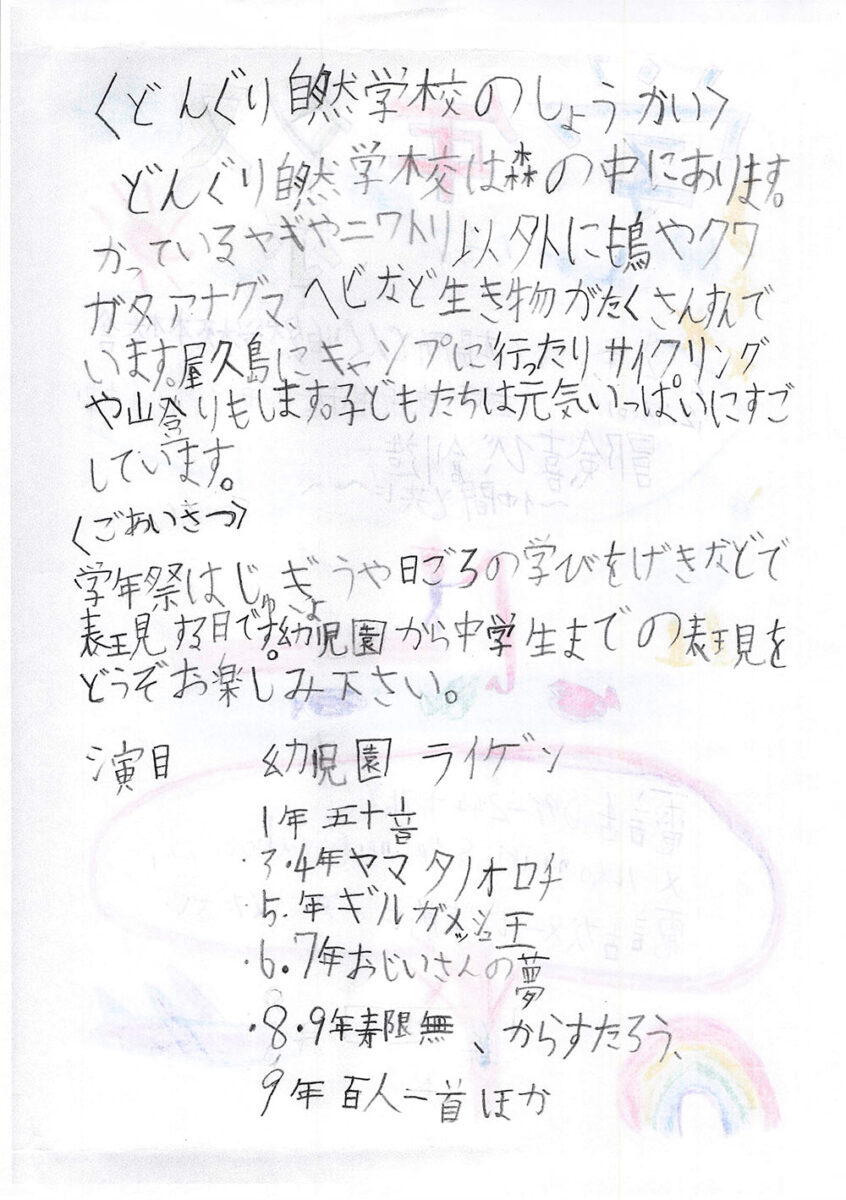 〈どんぐり自然学校のしょうかい〉
どんぐり自然学校は森の中にあります。
かっているヤギやニワトリ以外に鵯やクワ
ガタ、アナグマ、ヘビなど生き物がたくさんすんで
います。屋久島にキャンプに行ったり、サイクリング
や山登りもします。子どもたちは元気いっぱいにすご
しています。
〈ごあいさつ〉
学年祭はじゅぎょうや日ごろの学びをげきなどで
表現する日です。幼児園から中学生までの表現を
どうぞお楽しみ下さい。
演目 幼児園 ライゲン
1年 五十音
・3・4年 ヤマタノオロチ
・5.年 ギルガメッシュ王
・6.7年 おじいさんの夢
・8・9年 寿限無、からすたろう、
9年 百人一首ほか